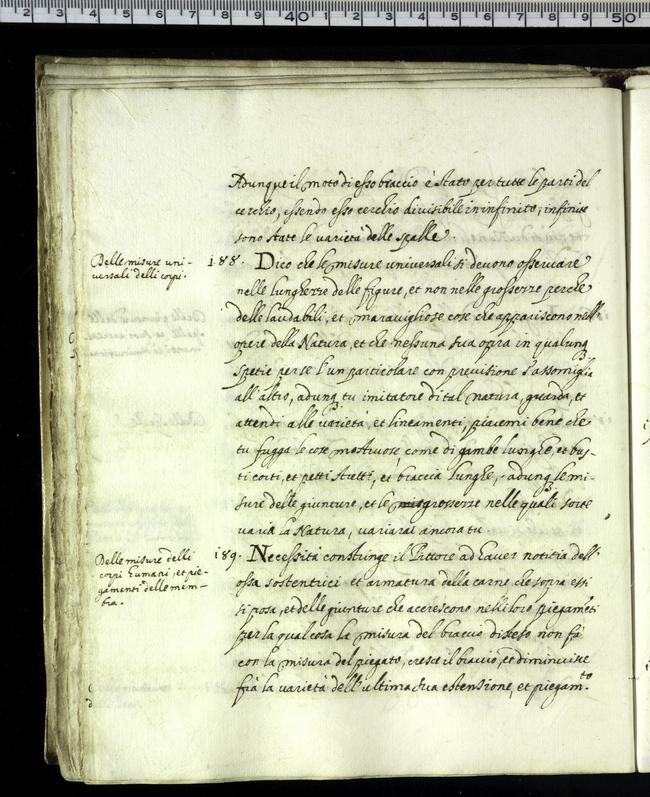 Adunque il moto di esso braccio è stato per tutte le parti del
cerchio, essendo esso cerchio divisibile in infinito, infinite
sono state le varietà delle spalle.
Delle misure uni-
versali delli corpi.
188. Dico che le misure universali si devono osservare
nelle lunghezze delle figure, et non nelle grossezze perche
delle laudabili, et maravigliose cose che appariscono nell'
opere della Natura, et che nessuna sua opra in qualunq3
spetie per se l'un particolare con precisione s'assomiglia
all'altro, adunq3 tu imitatore di tal natura, guarda, et
attendi alle varietà et lineamenti, piacemi bene che
tu fugga le cose mostruose come di gambe lunghe, et bus-
ti corti, et petti stretti, et braccia lunghe, adunq3 le mi-
sure delle giunture, et le grossezze nelle quali forte
varia la Natura, variarai ancora tu
Delle misure delli
corpi humani, et pie-
gamenti delle mem-
bra.
189. Necessità constringe il Pittore ad haver notitia dell'
ossa sostentrici et armatura della carne che sopra essi
si posa, et delle giunture che accrescono nelli loro piegamēti
per la qual cosa la misura del braccio disteso non fà
con la misura del piegato, cresce il braccio, et diminuisce
frà la varietà dell'ultima sua estensione, et piegam.to